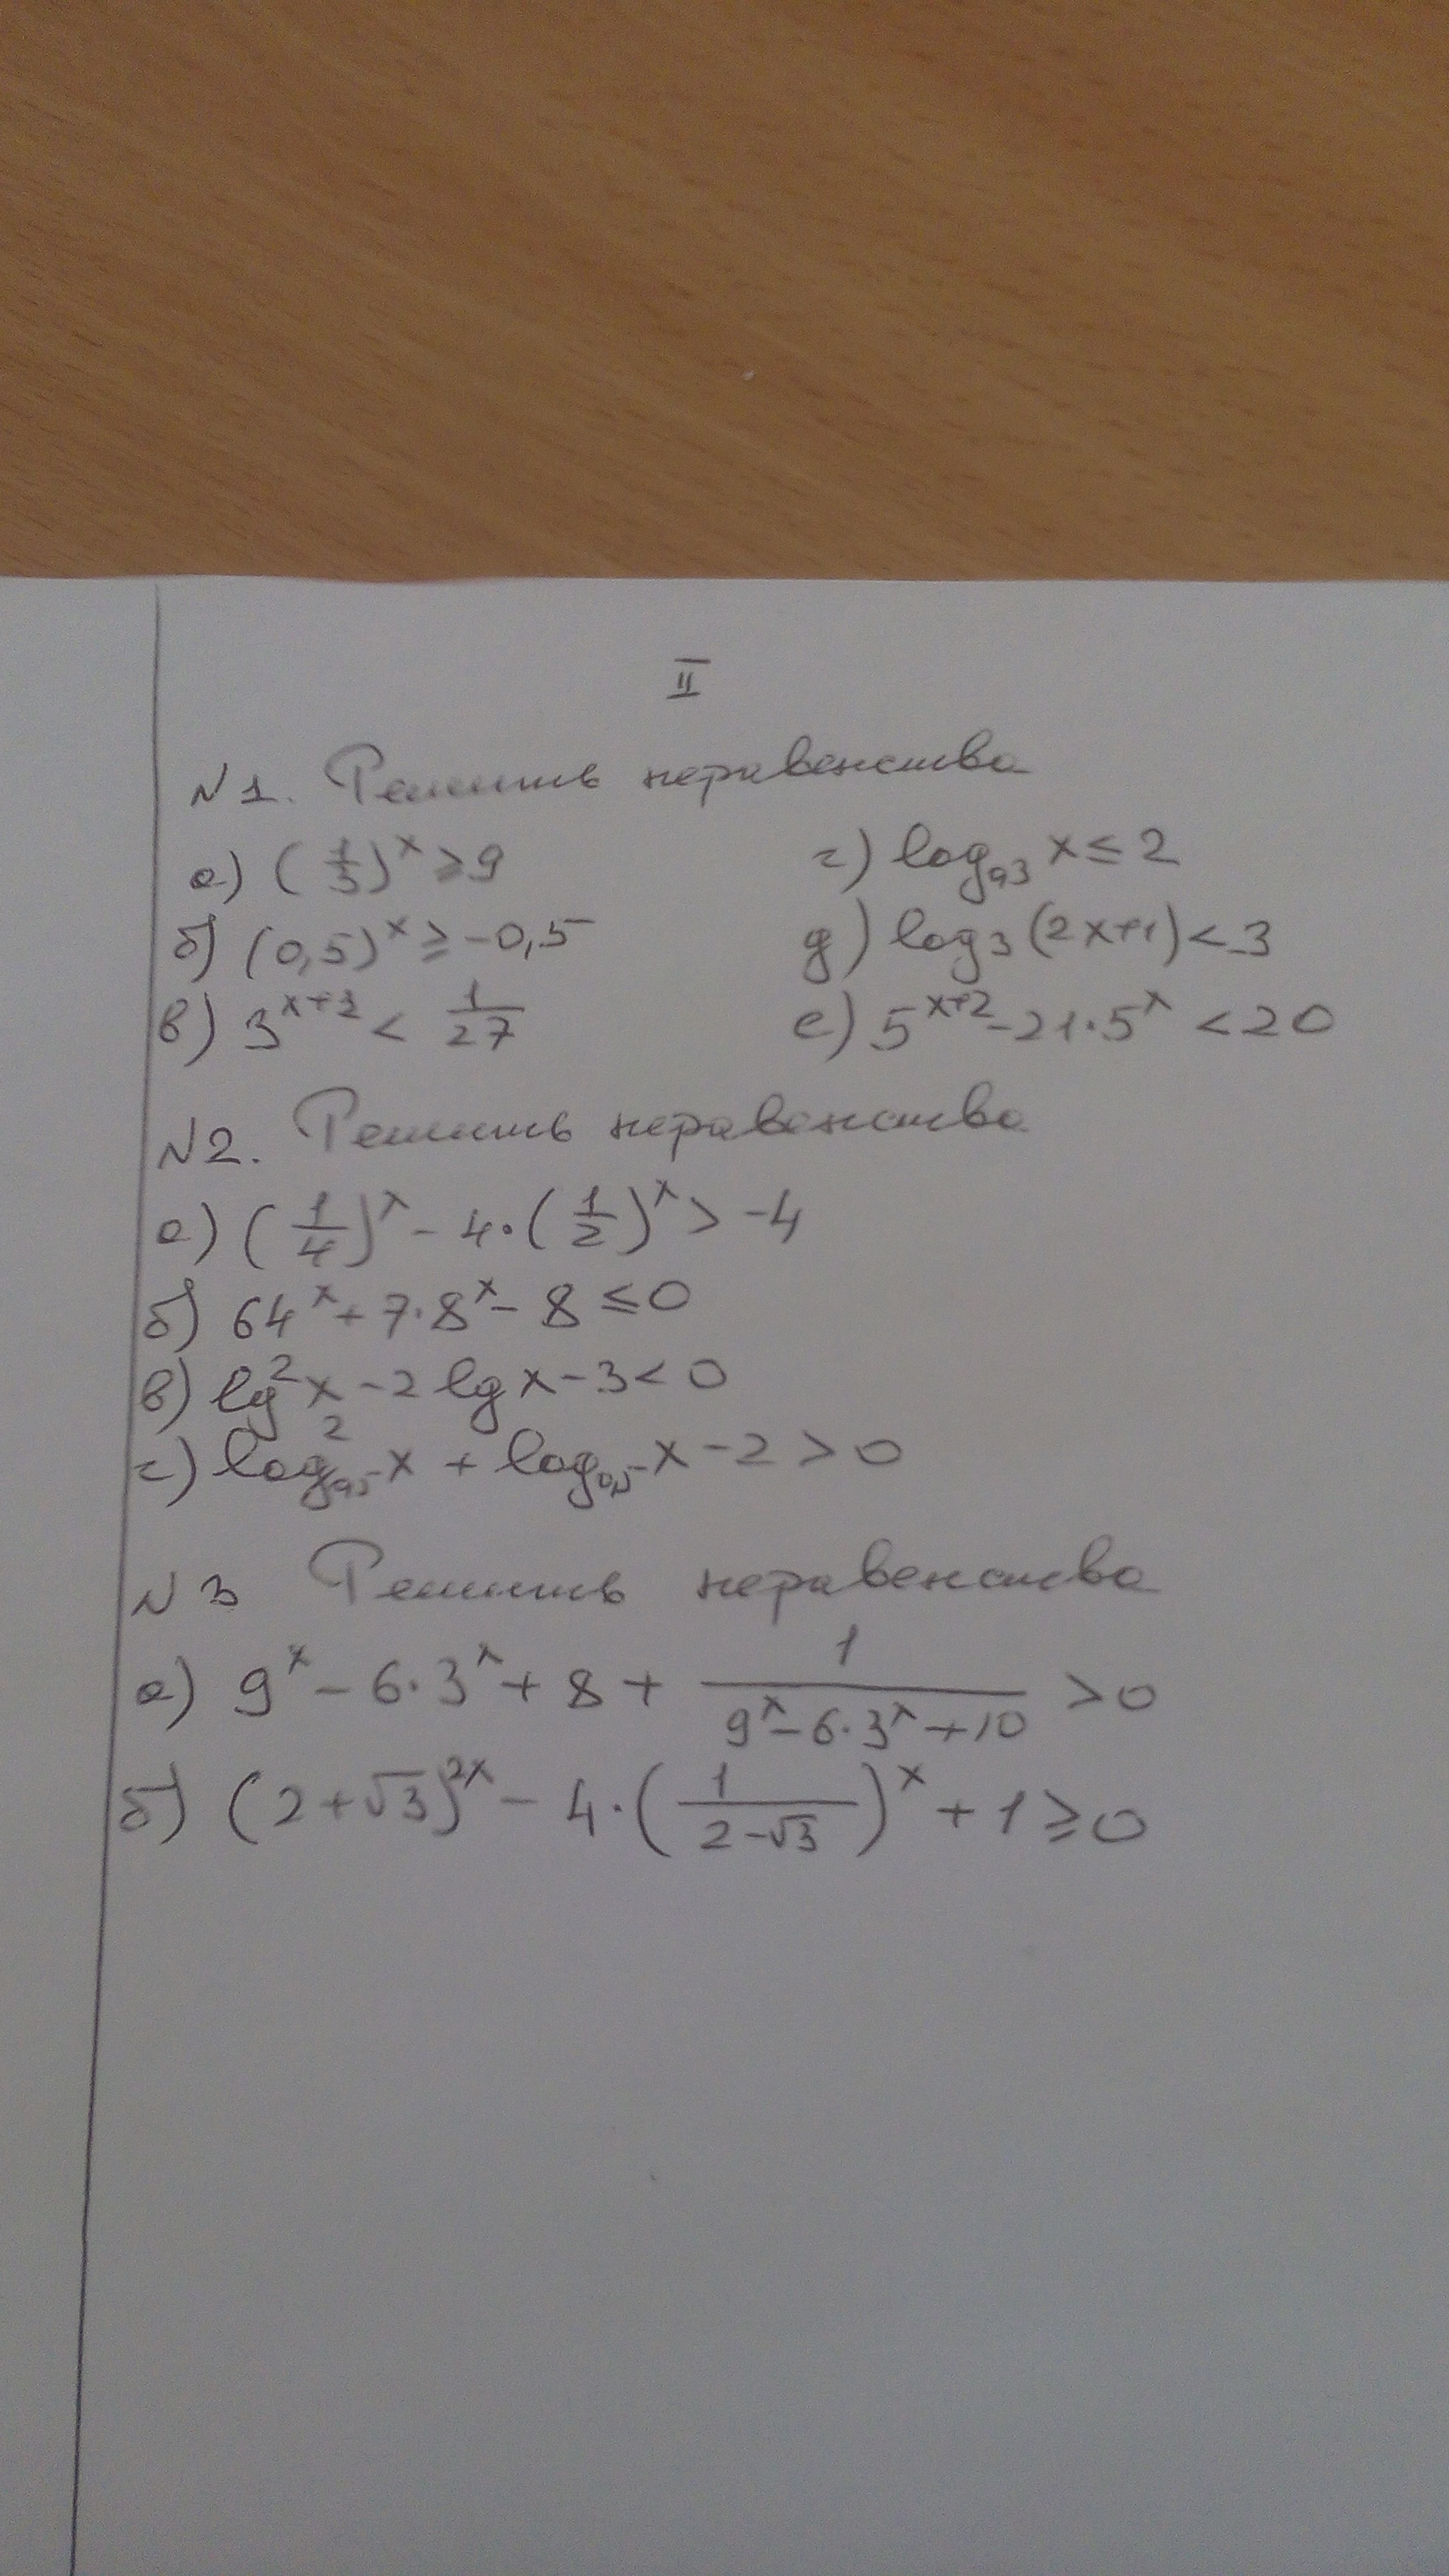 II
N1. Решить неравенства
а) (1/3)^x ≥ 9 г) log_0,3 x ≤ 2
б) (0,5)^x ≥ -0,5 д) log_3 (2x+1) < 3
в) 3^(x+2) < 1/27 е) 5^(x+2) - 21·5^x < 20
N2. Решить неравенства
а) (1/4)^x - 4·(1/2)^x > -4
б) 64^x + 7·8^x - 8 ≤ 0
в) lg^2 x - 2 lg x - 3 < 0
г) log^2_0,5 x + log_0,5 x - 2 > 0
N3 Решить неравенства
а) 9^x - 6·3^x + 8 + 1/(9^x - 6·3^x + 10) > 0
б) (2+√3)^2x - 4·(1/(2-√3))^x + 1 ≥ 0